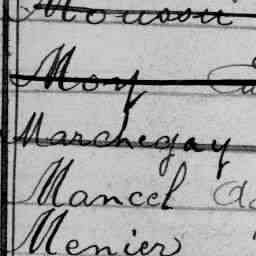 Moussu
Moy
Marchegay
Mancel
Menier